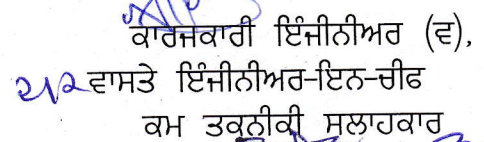 ਕਾਰਜਕਾਰੀ ਇੰਜੀਨੀਅਰ (ਵ),
ਵਾਸਤੇ ਇੰਜੀਨੀਅਰ-ਇਨ-ਚੀਫ
ਕਮ ਤਕਨੀਕੀ ਸਲਾਹਕਾਰ